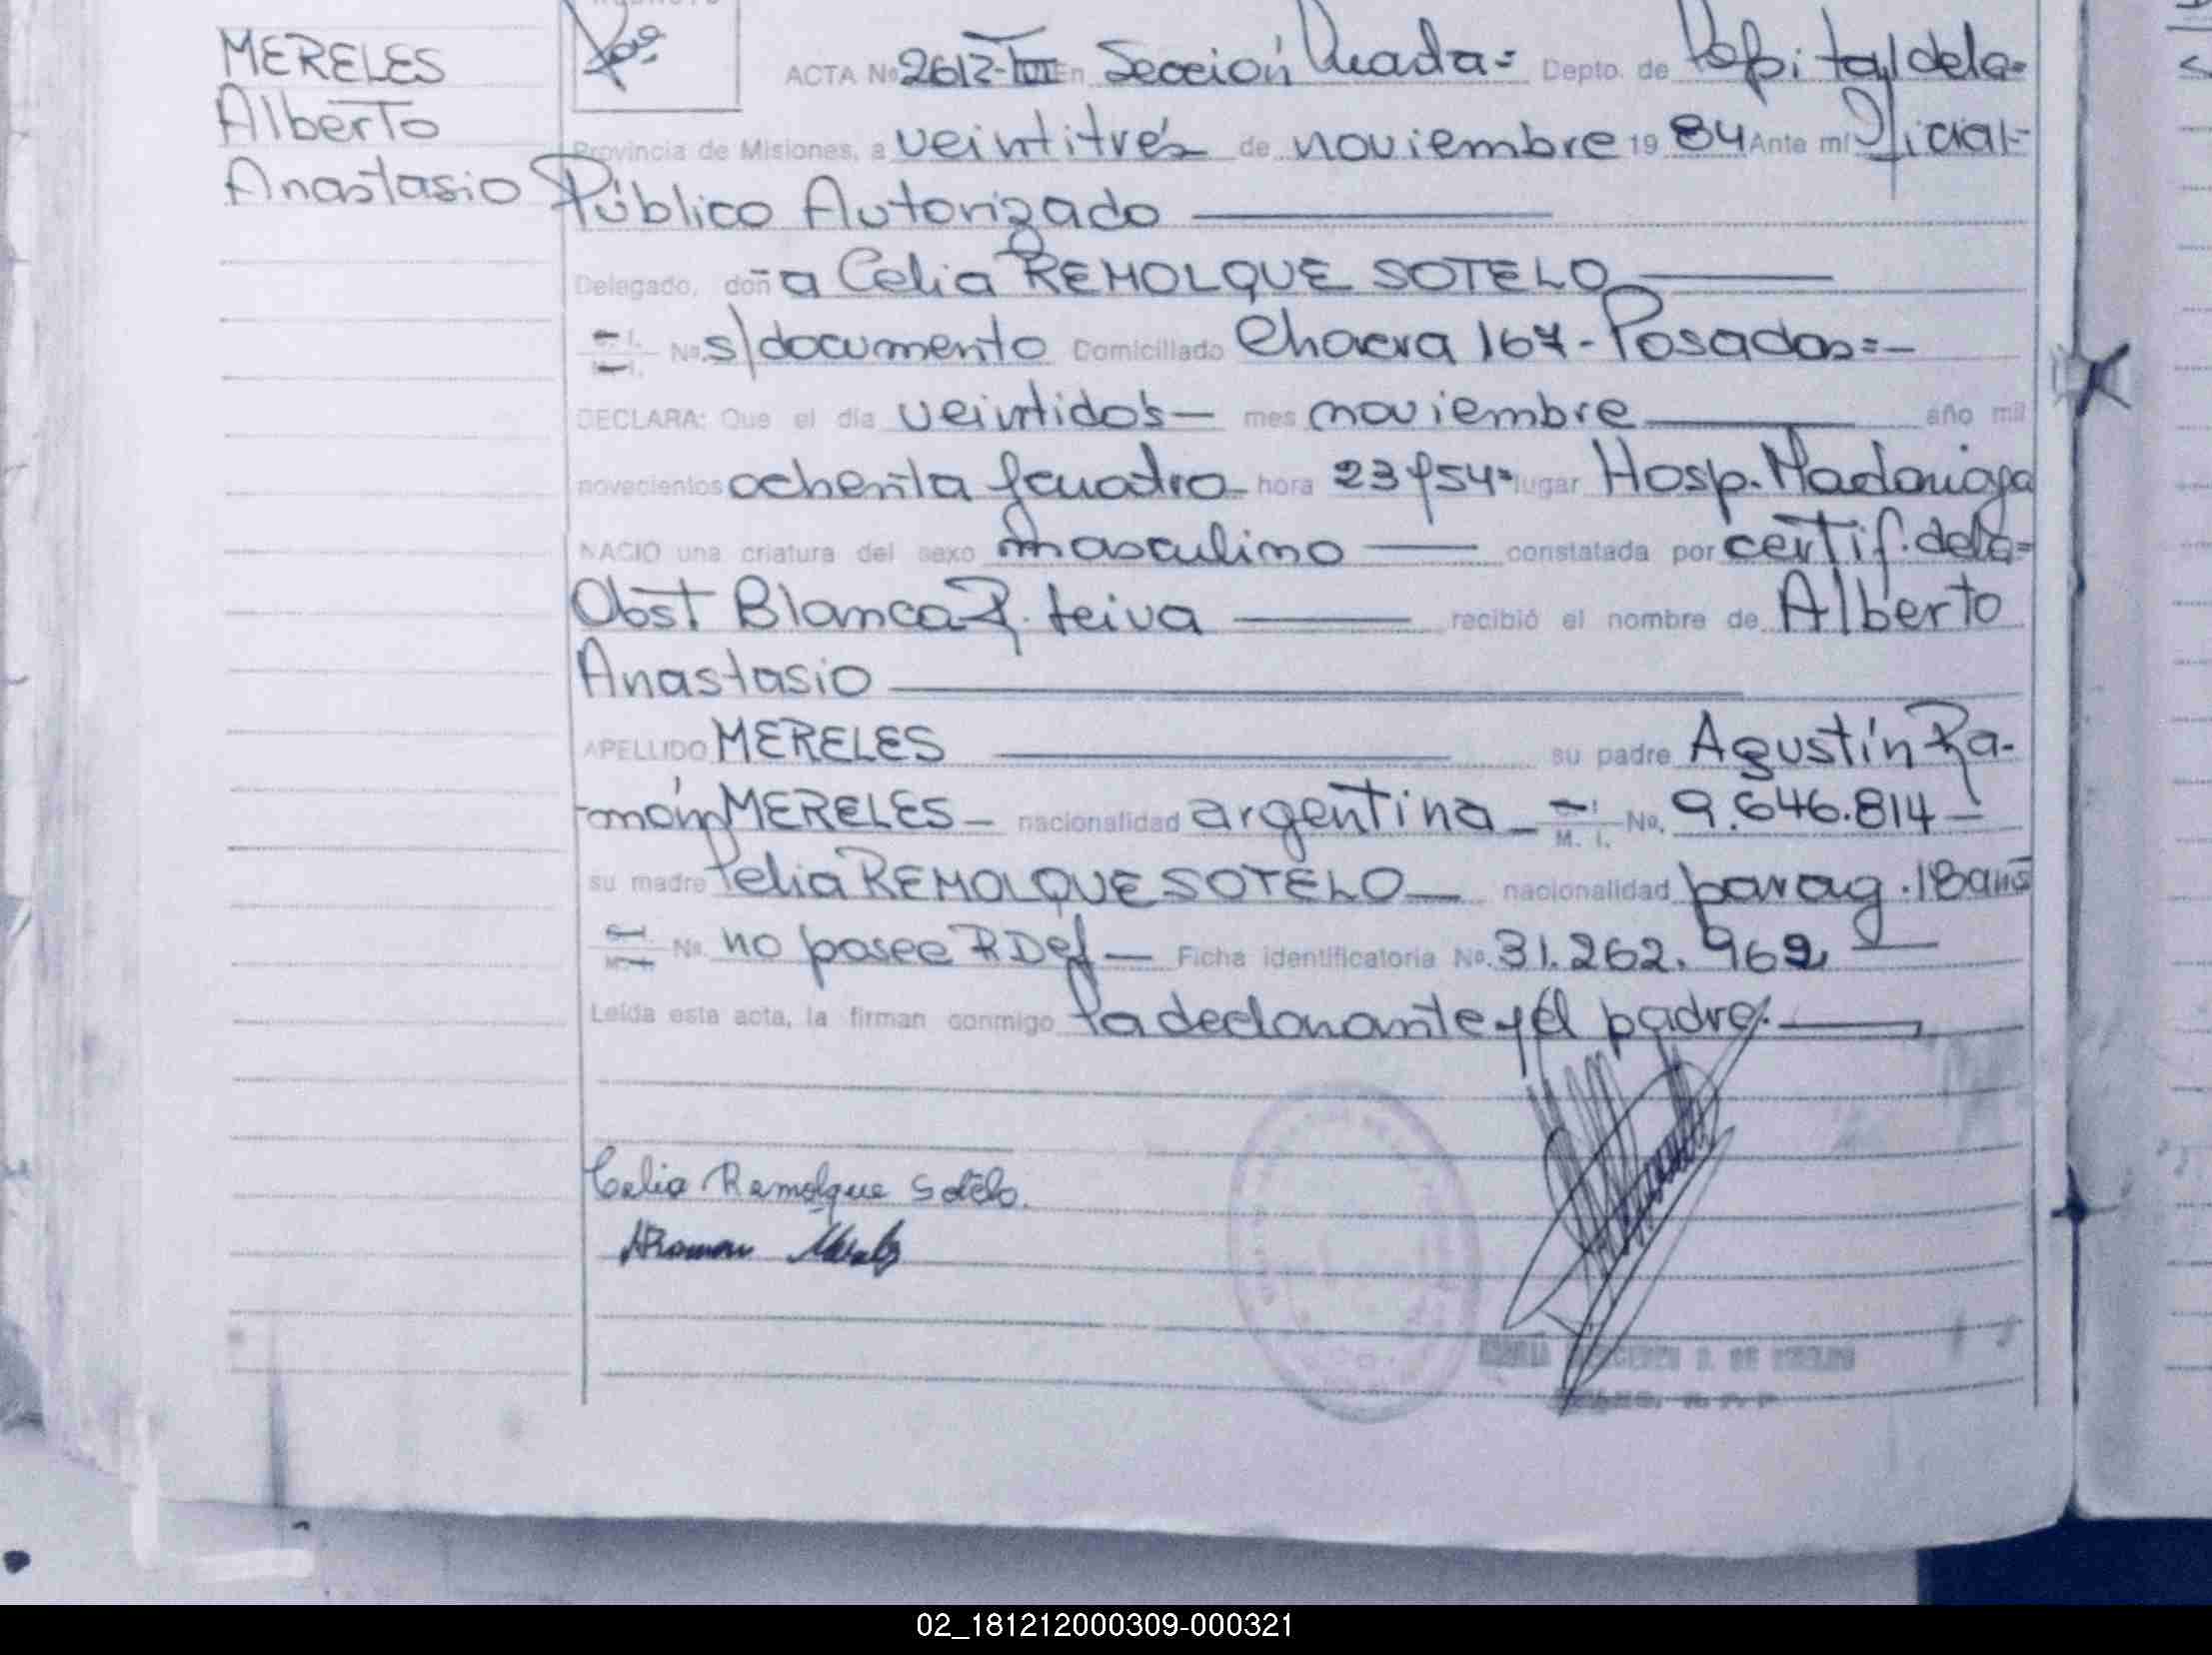 MERELES
Alberto
Anastasio
ACTA Nº 2612-III En Sección Cuarta= Depto. de Capital de la=
Provincia de Misiones, a veintitrés de noviembre 19 84 Ante mí Oficial-
Público Autorizado
Delegado, doña Celia REMOLQUE SOTELO
Nº. s/documento Domiciliado Chacra 167 - Posadas=-
DECLARA: Que el día veintidós - mes noviembre año mil
novecientos ochenta y cuatro - hora 23 y 54= lugar Hosp. Madariaga
NACIO una criatura del sexo masculino constatada por certif. de la=
Obst Blanca R. teiva recibió el nombre de Alberto
Anastasio
APELLIDO MERELES su padre Agustín Ra-
-món MERELES - nacionalidad argentina - M. I. No. 9.646.814 -
su madre Celia REMOLQUE SOTELO - nacionalidad parag. 18 años
No. no posee R Def - Ficha identificatoria Nº. 31.262.962
Leída esta acta, la firman conmigo la declarante y el padre.
Celia Remolque Sotelo.
A Ramon Mereles
02_181212000309-000321